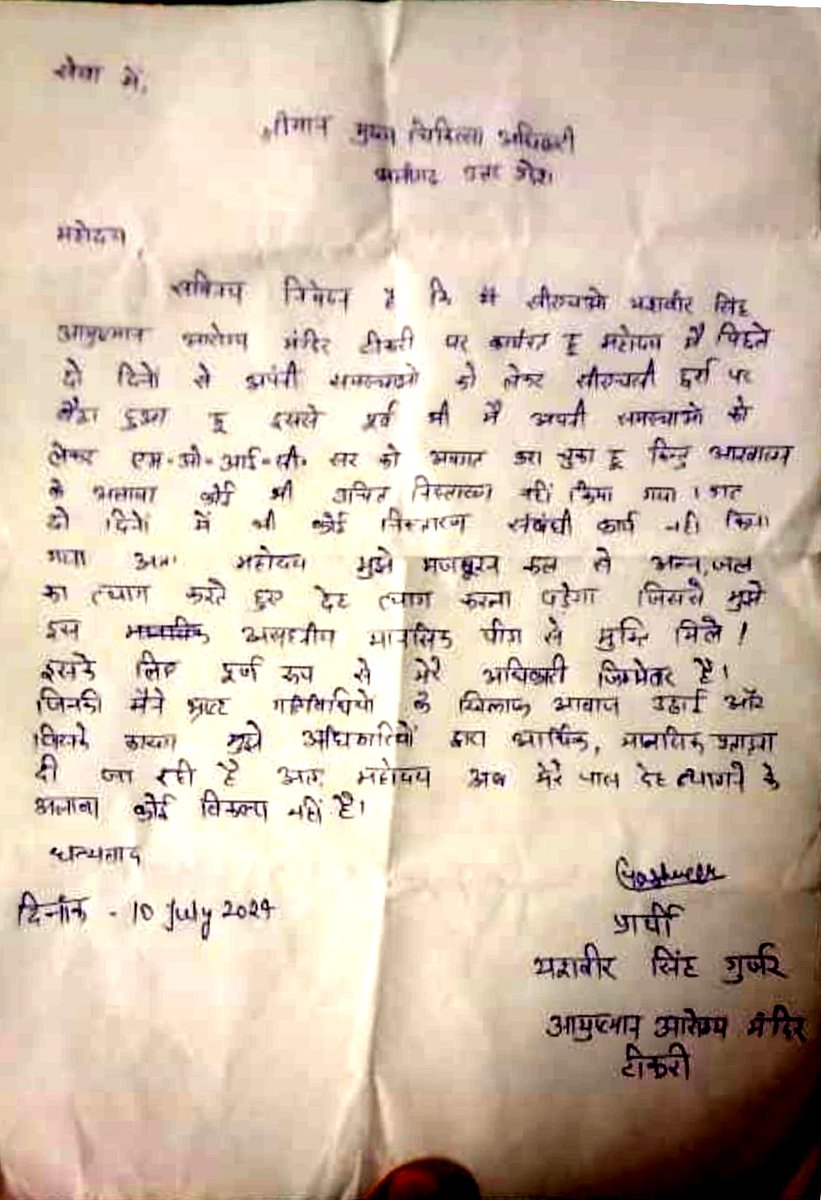 सेवा में,
श्रीमान मुख्य चिकित्सा अधिकारी
अलीगढ़ उत्तर प्रदेश
महोदय,
सविनय निवेदन है कि मैं सीएचओ यशवीर सिंह
आयुष्मान आरोग्य मंदिर टीकरी पर कार्यरत हू महोदय मैं पिछले
दो दिनों से अपनी समस्याओ को लेकर सीएचसी हर्रा पर
बैठा हुआ हू इससे पूर्व भी मैं अपनी समस्याओ को
लेकर एम॰ओ॰आई॰सी॰ सर को अवगत करा चुका हू किन्तु आश्वासन
के अलावा कोई भी उचित निस्तारण नहीं किया गया । गत
दो दिनों में भी कोई निस्तारण संबंधी कार्य नही किया
गया अतः महोदय मुझे मजबूरन कल से अन्न, जल
का त्याग करते हुए देह त्याग करना पड़ेगा जिससे मुझे
इस असहनीय मानसिक पीड़ा से मुक्ति मिले !
इसके लिए पूर्ण रूप से मेरे अधिकारी जिम्मेदार है।
जिनकी मैंने भ्रष्ट गतिविधियो के खिलाफ आवाज उठाई और
जिसके कारण मुझे अधिकारियों द्वारा आर्थिक, मानसिक प्रताड़ना
दी जा रही है अतः महोदय अब मेरे पास देह त्यागने के
अलावा कोई विकल्प नहीं है।
धन्यवाद
दिनांक - 10 July 2024
Yashveer
प्रार्थी
यशवीर सिंह गुर्जर
आयुष्मान आरोग्य मंदिर
टीकरी